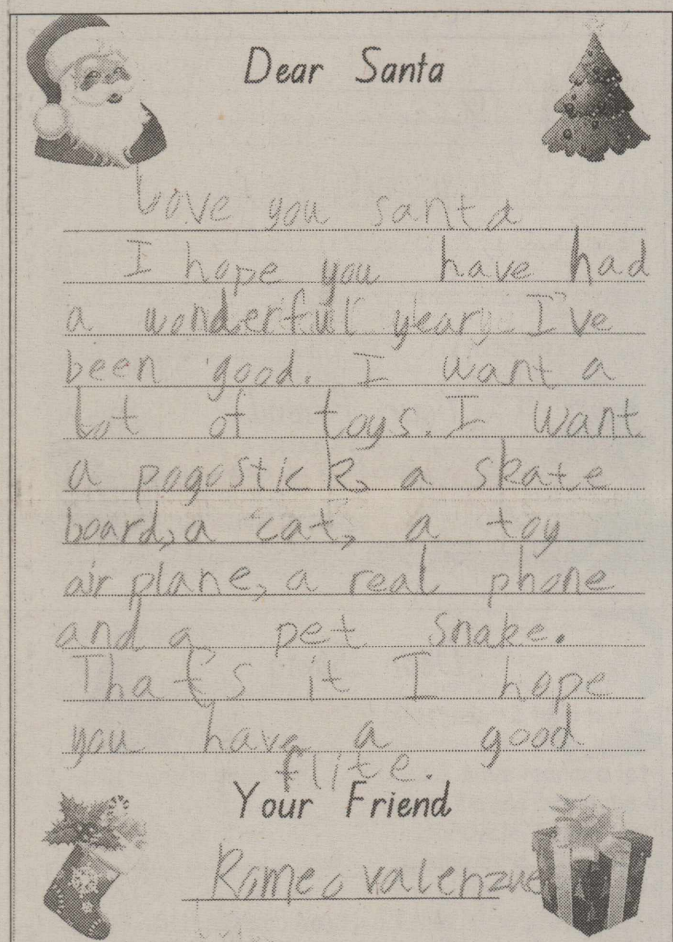 Dear Santa
Love you santa
I hope you have had
a wonderful year. I've
been good. I want a
Lot of toys. I want
a pogostick, a skate
board, a cat, a toy
air plane, a real phone
and a pet snake.
That's it I hope
you have a good
flite.
Your Friend
Romeo valenzue